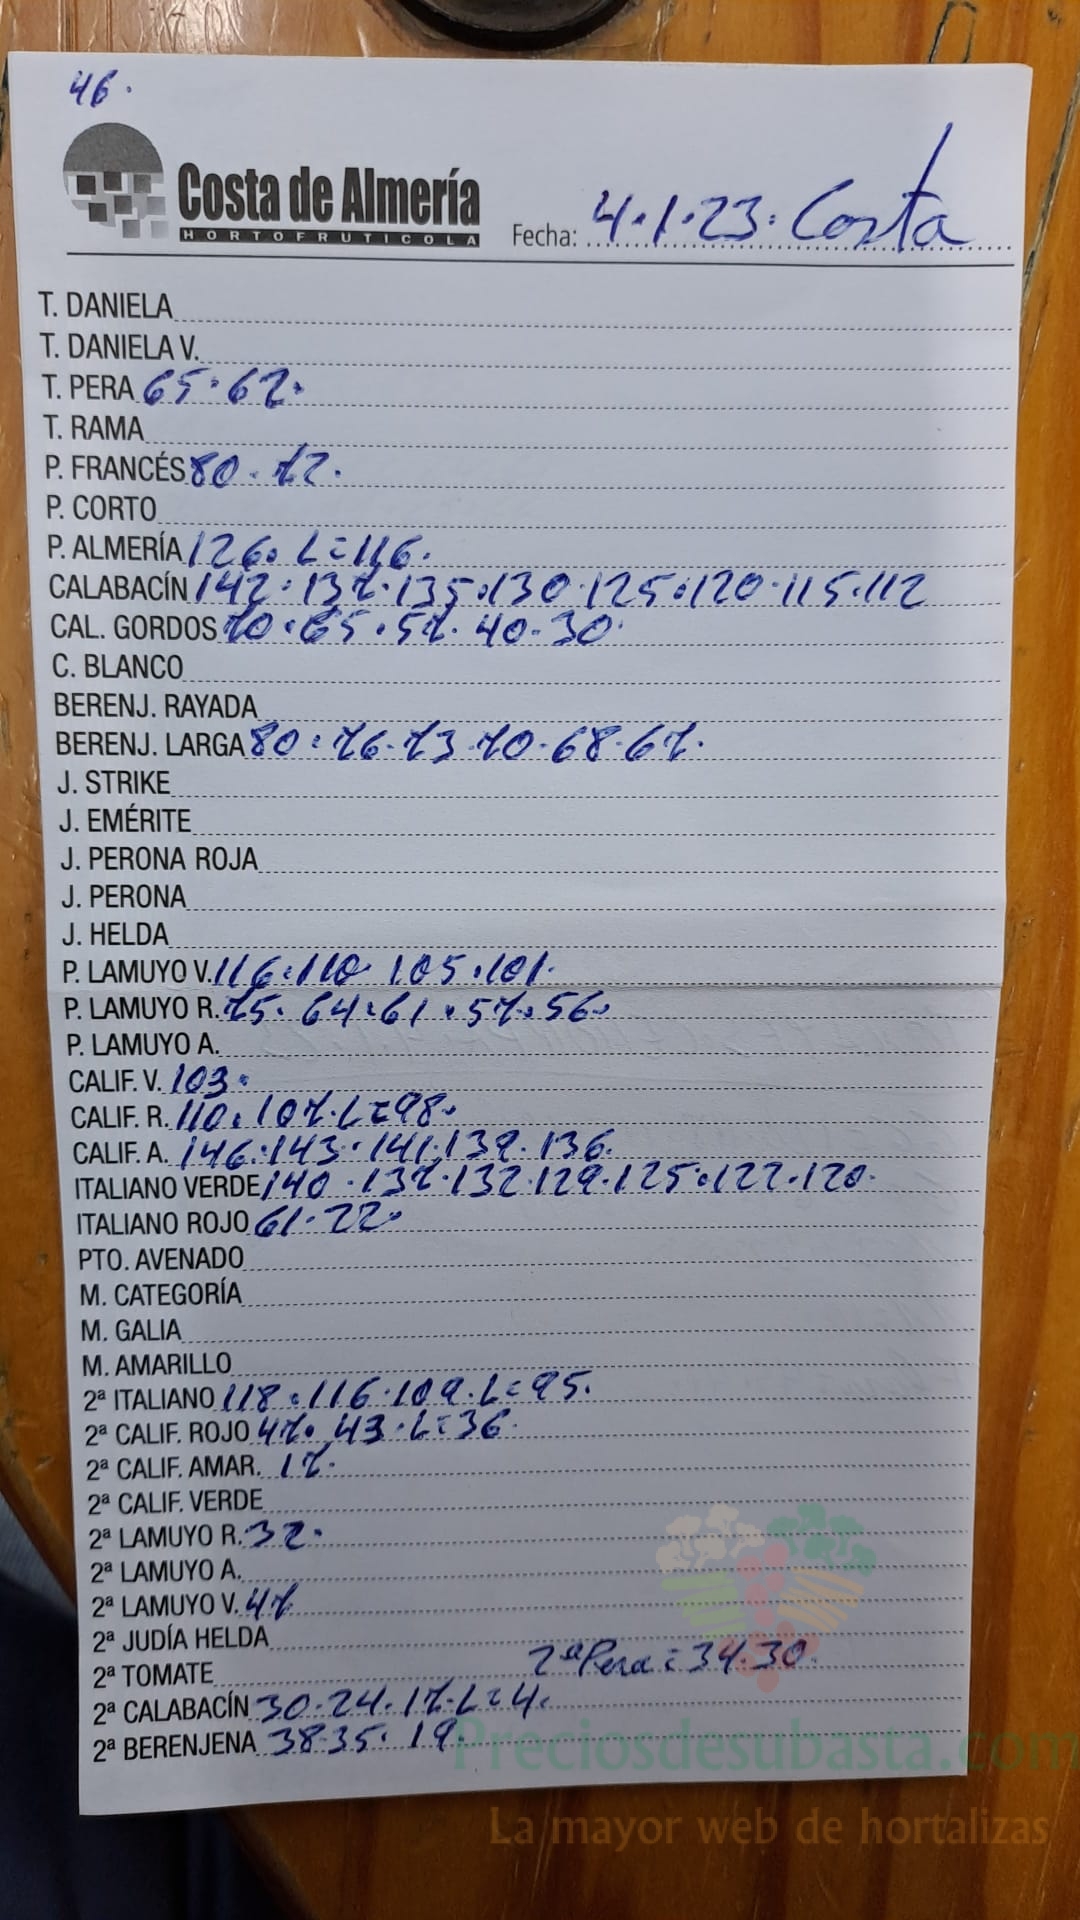 46.
Costa de Almería
HORTOFRUTICOLA
Fecha: 4.1.23. Costa
T. DANIELA
T. DANIELA V.
T. PERA 65.62.
T. RAMA
P. FRANCÉS 80.72.
P. CORTO
P. ALMERÍA 126. L=116.
CALABACÍN 142.137.135.130.125.120.115.112
CAL. GORDOS 70.65.57.40.30.
C. BLANCO
BERENJ. RAYADA
BERENJ. LARGA 80.76.73.70.68.67.
J. STRIKE
J. EMÉRITE
J. PERONA ROJA
J. PERONA
J. HELDA
P. LAMUYO V. 116.110.105.101.
P. LAMUYO R. 75.64.61.57.56.
P. LAMUYO A.
CALIF. V. 103.
CALIF. R. 110.107.L=98.
CALIF. A. 146.143.141.139.136.
ITALIANO VERDE 140.137.132.129.125.122.120.
ITALIANO ROJO 61.22.
PTO. AVENADO
M. CATEGORÍA
M. GALIA
M. AMARILLO
2ª ITALIANO 118.116.109.L=95.
2ª CALIF. ROJO 47.43.L=36.
2ª CALIF. AMAR. 17.
2ª CALIF. VERDE
2ª LAMUYO R. 32.
2ª LAMUYO A.
2ª LAMUYO V. 47
2ª JUDÍA HELDA
2ª TOMATE 2ª Pera = 34.30.
2ª CALABACÍN 30.24.17.L=4.
2ª BERENJENA 38.35.19.
Preciosdesubasta.com
La mayor web de hortalizas